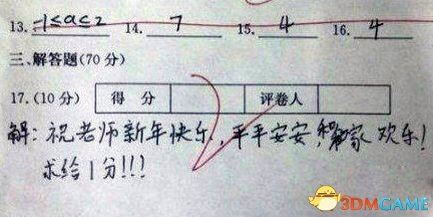 13. -1≤a≤2 14. 7 15. 4 16. 4
三、解答题(70分)
17.(10分) 得 分 评卷人
解:祝老师新年快乐,平平安安,家欢乐!
求给1分!!!
3DMGAME